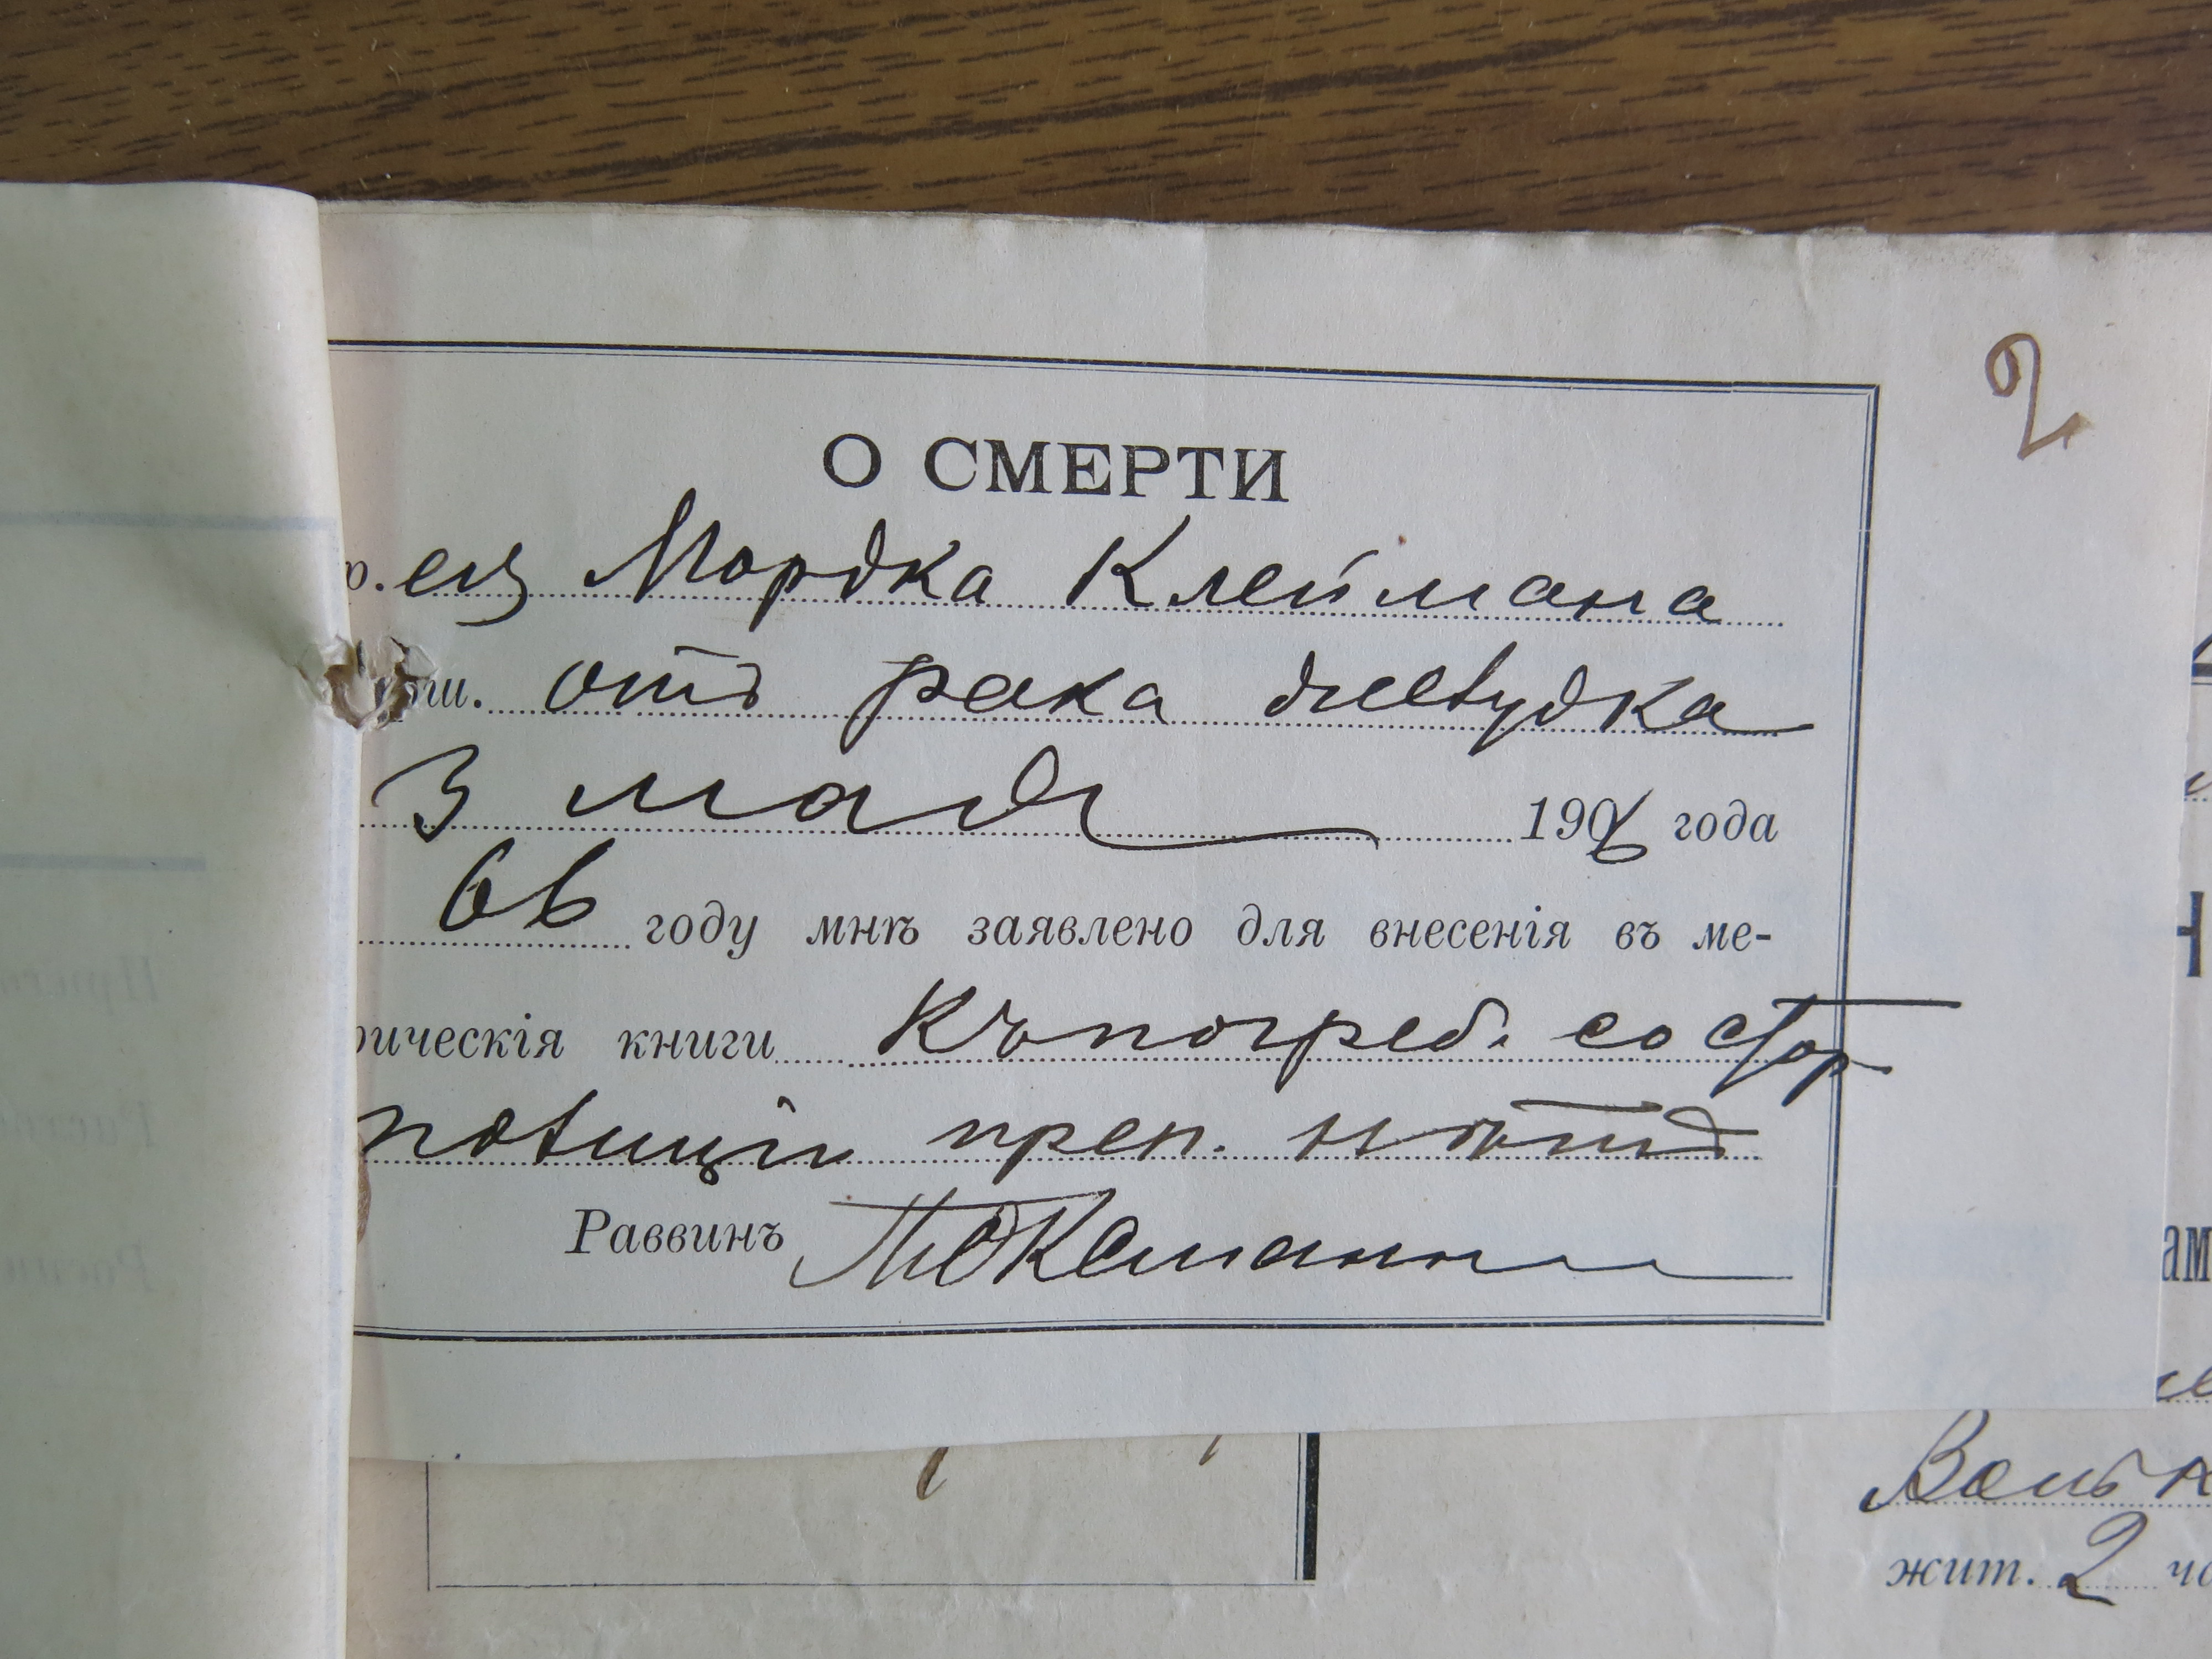 2
О СМЕРТИ
р. евр Мордка Клеймана
ош. отъ рака желудка
3 мая 1906 года
66 году мнѣ заявлено для внесенія въ ме-
рическія книги Къ погреб. со стор
полиціи преп. нѣтъ
Раввинъ
жит. 2 ча